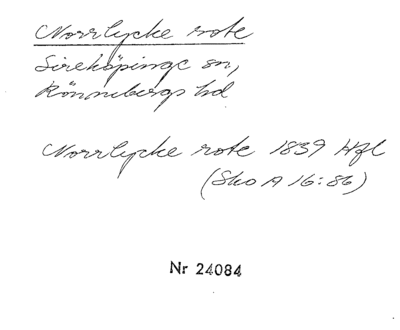 Norrlycke rote
Sireköpinge sn,
Rönnebergs hd
Norrlycke rote 1839 Hfl
(Sko A 16:86)
Nr 24084